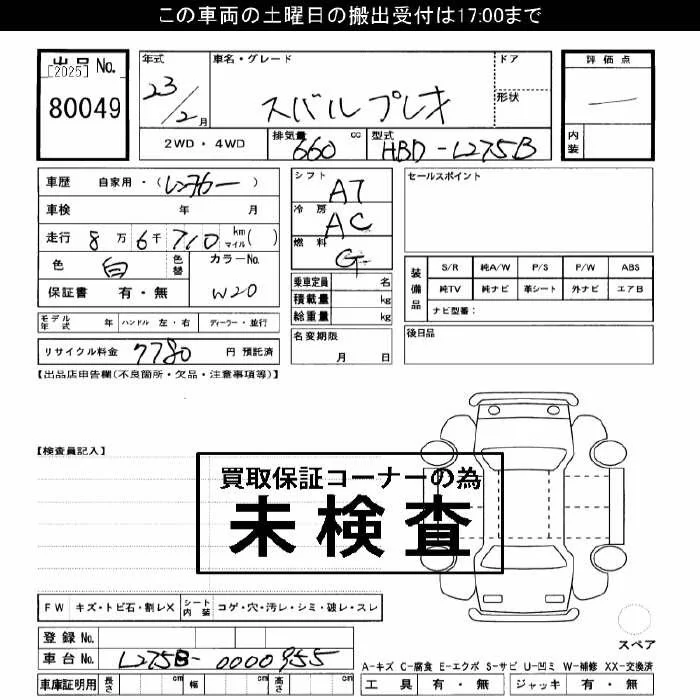 この車両の土曜日の搬出受付は17:00まで
出品 No.
[2025]
80049
年式
23/2月
車名・グレード
スバルプレオ
ドア
形状
評価点
内装
2WD・4WD
排気量 660 cc
型式 HBD-L275B
車歴 自家用・(レンタカー)
車検 年 月
走行 8万6千710 km マイル( )
色 白 色替 カラーNo. W20
保証書 有・無
シフト AT
冷房 AC
燃料 G
乗車定員 名
積載量 kg
総重量 kg
名変期限 月 日
セールスポイント
装備品
S/R 純A/W P/S P/W ABS
純TV 純ナビ 革シート 外ナビ エアB
ナビ型番:
後日品
モデル年式 年 ハンドル 左・右 ディーラー・並行
リサイクル料金 7780 円 預託済
【出品店申告欄(不良箇所・欠品・注意事項等)】
【検査員記入】
買取保証コーナーの為
未検査
FW キズ・トビ石・割レX シート内装 コゲ・穴・汚レ・シミ・破レ・スレ
登録 No.
車台 No. L275B-0000955
車庫証明用 長さ cm 幅 cm 高さ cm
スペア
A-キズ C-腐食 E-エクボ S-サビ U-凹ミ W-補修 XX-交換済
工具 有・無 ジャッキ 有・無